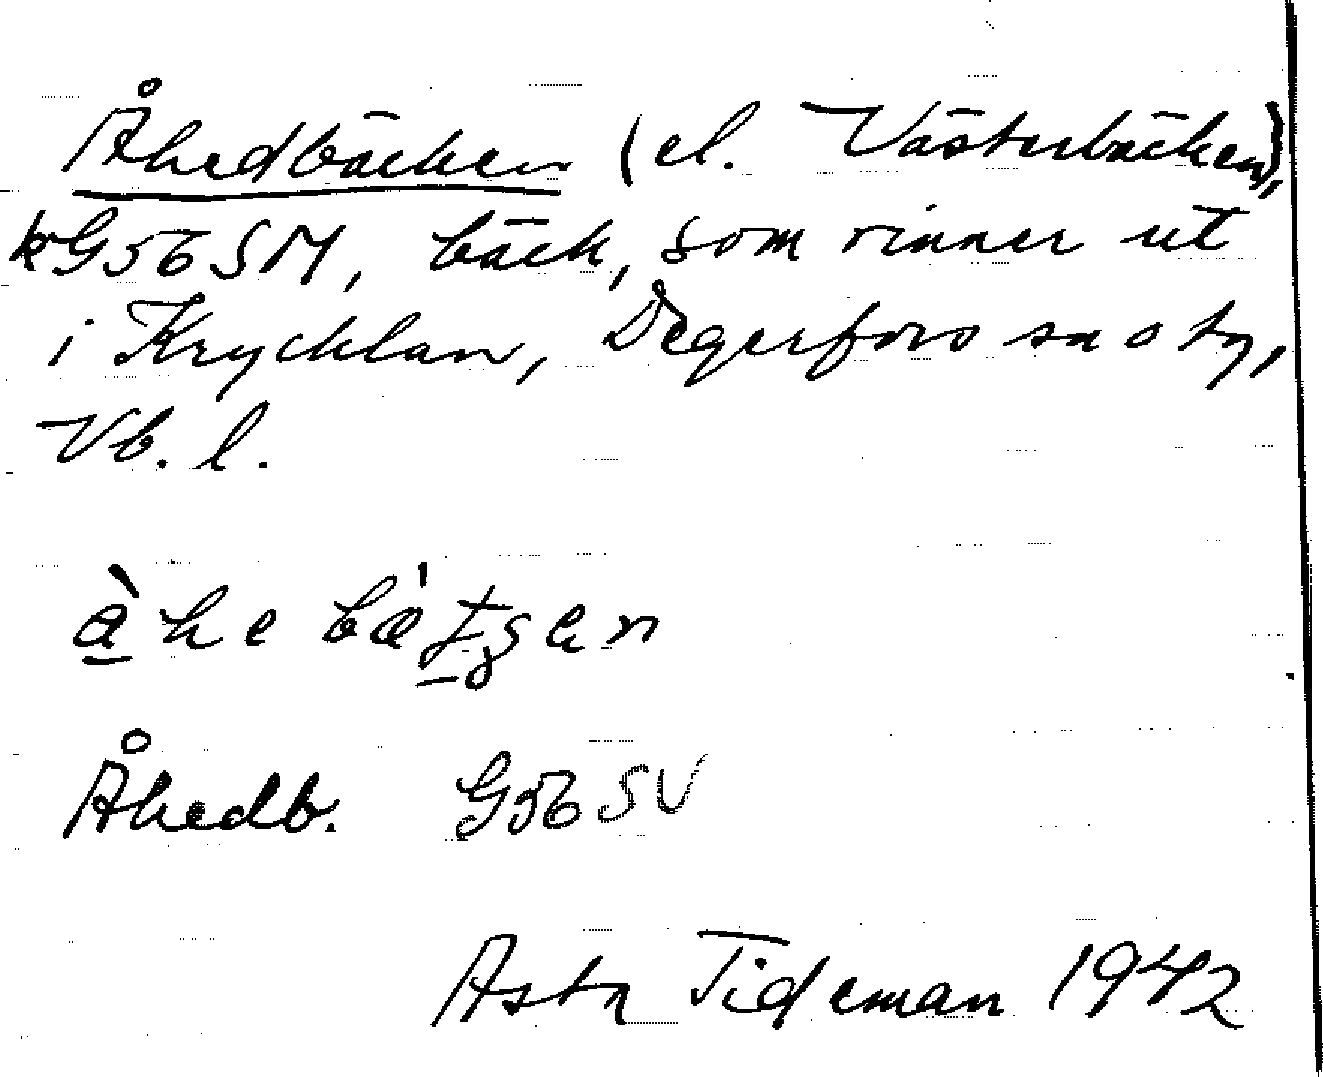 Åhedbäcken (el. Västerbäcken),
kG56SM, bäck, som rinner ut
i Krycklan, Degerfors sn o tg,
Vb. l.
Åhedb. G56 SV
Asta Tideman 1942